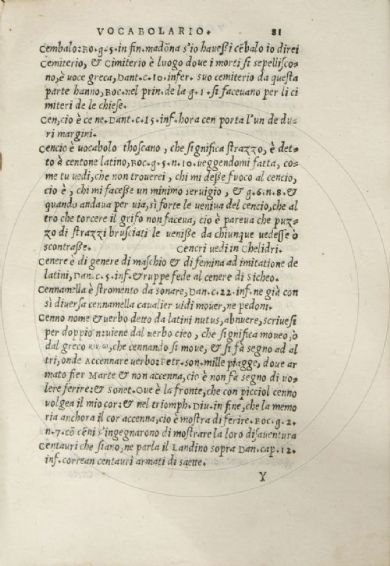 VOCABOLARIO. 81
Cembalo: BO.g.5.in fin.madõna s'io haueßi cẽbalo io direi
Cemiterio, & Cimiterio è luogo doue i morti si sepellisco-
no, è uoce greca, Dant.c.10.infer. suo cemiterio da questa
parte hanno, Boc.nel prin.de la g.1.si faceuano per li ci
miteri de le chiese.
Cen, cio è ce ne. Dant.c.15.inf.hora cen porta l'un de du-
ri margini.
Cencio è uocabolo thoscano, che significa strazzo, è det-
to è centone latino, Boc.g.5.n.10.ueggendomi fatta, co-
me tu uedi, che non trouerei, chi mi deße fuoco al cencio,
cio è, chi mi faceße un minimo seruigio, & g.6.n.8.&
quando andaua per uia, sì forte le ueniua del cencio, che al
tro che torcere il grifo non faceua, cio è pareua che puz-
zo di strazzi brusciati le ueniße da chiunque uedeße ò
scontraße. Cencri uedi in Chelidri.
Cenere è di genere di maschio & di femina ad imitatione de
latini, Dan.c.5.inf.& ruppe fede al cenere di Sicheo.
Cennamella è stromento da sonare, Dan.c.22.inf.ne già con
sì diuersa cennamella caualier uidi mouer, ne pedoni.
Cenno nome & uerbo detto da latini nutus, abnuere, scriuesi
per doppio n: uiene dal uerbo cieo, che significa moueo, ò
dal greco κινω, che cennando si moue, & si fà segno ad al
tri, onde Accennare uerbo: Petr.son.mille piagge, doue ar
mato fier Marte & non accenna, cio è non fà segno di uo-
lere ferire: & Sonet. Oue è la fronte, che con picciol cenno
volgea il mio cor: & nel triomph. Diu. in fine, che la memo
ria anchora il cor accenna, cio è mostra di ferire. Boc.g.2.
n.7.cõ cẽni s'ingegnarono di mostrare la loro disauentura
Centauri che siano, ne parla il Landino sopra Dan.cap.12.
inf. correan centauri armati di saette.
Y